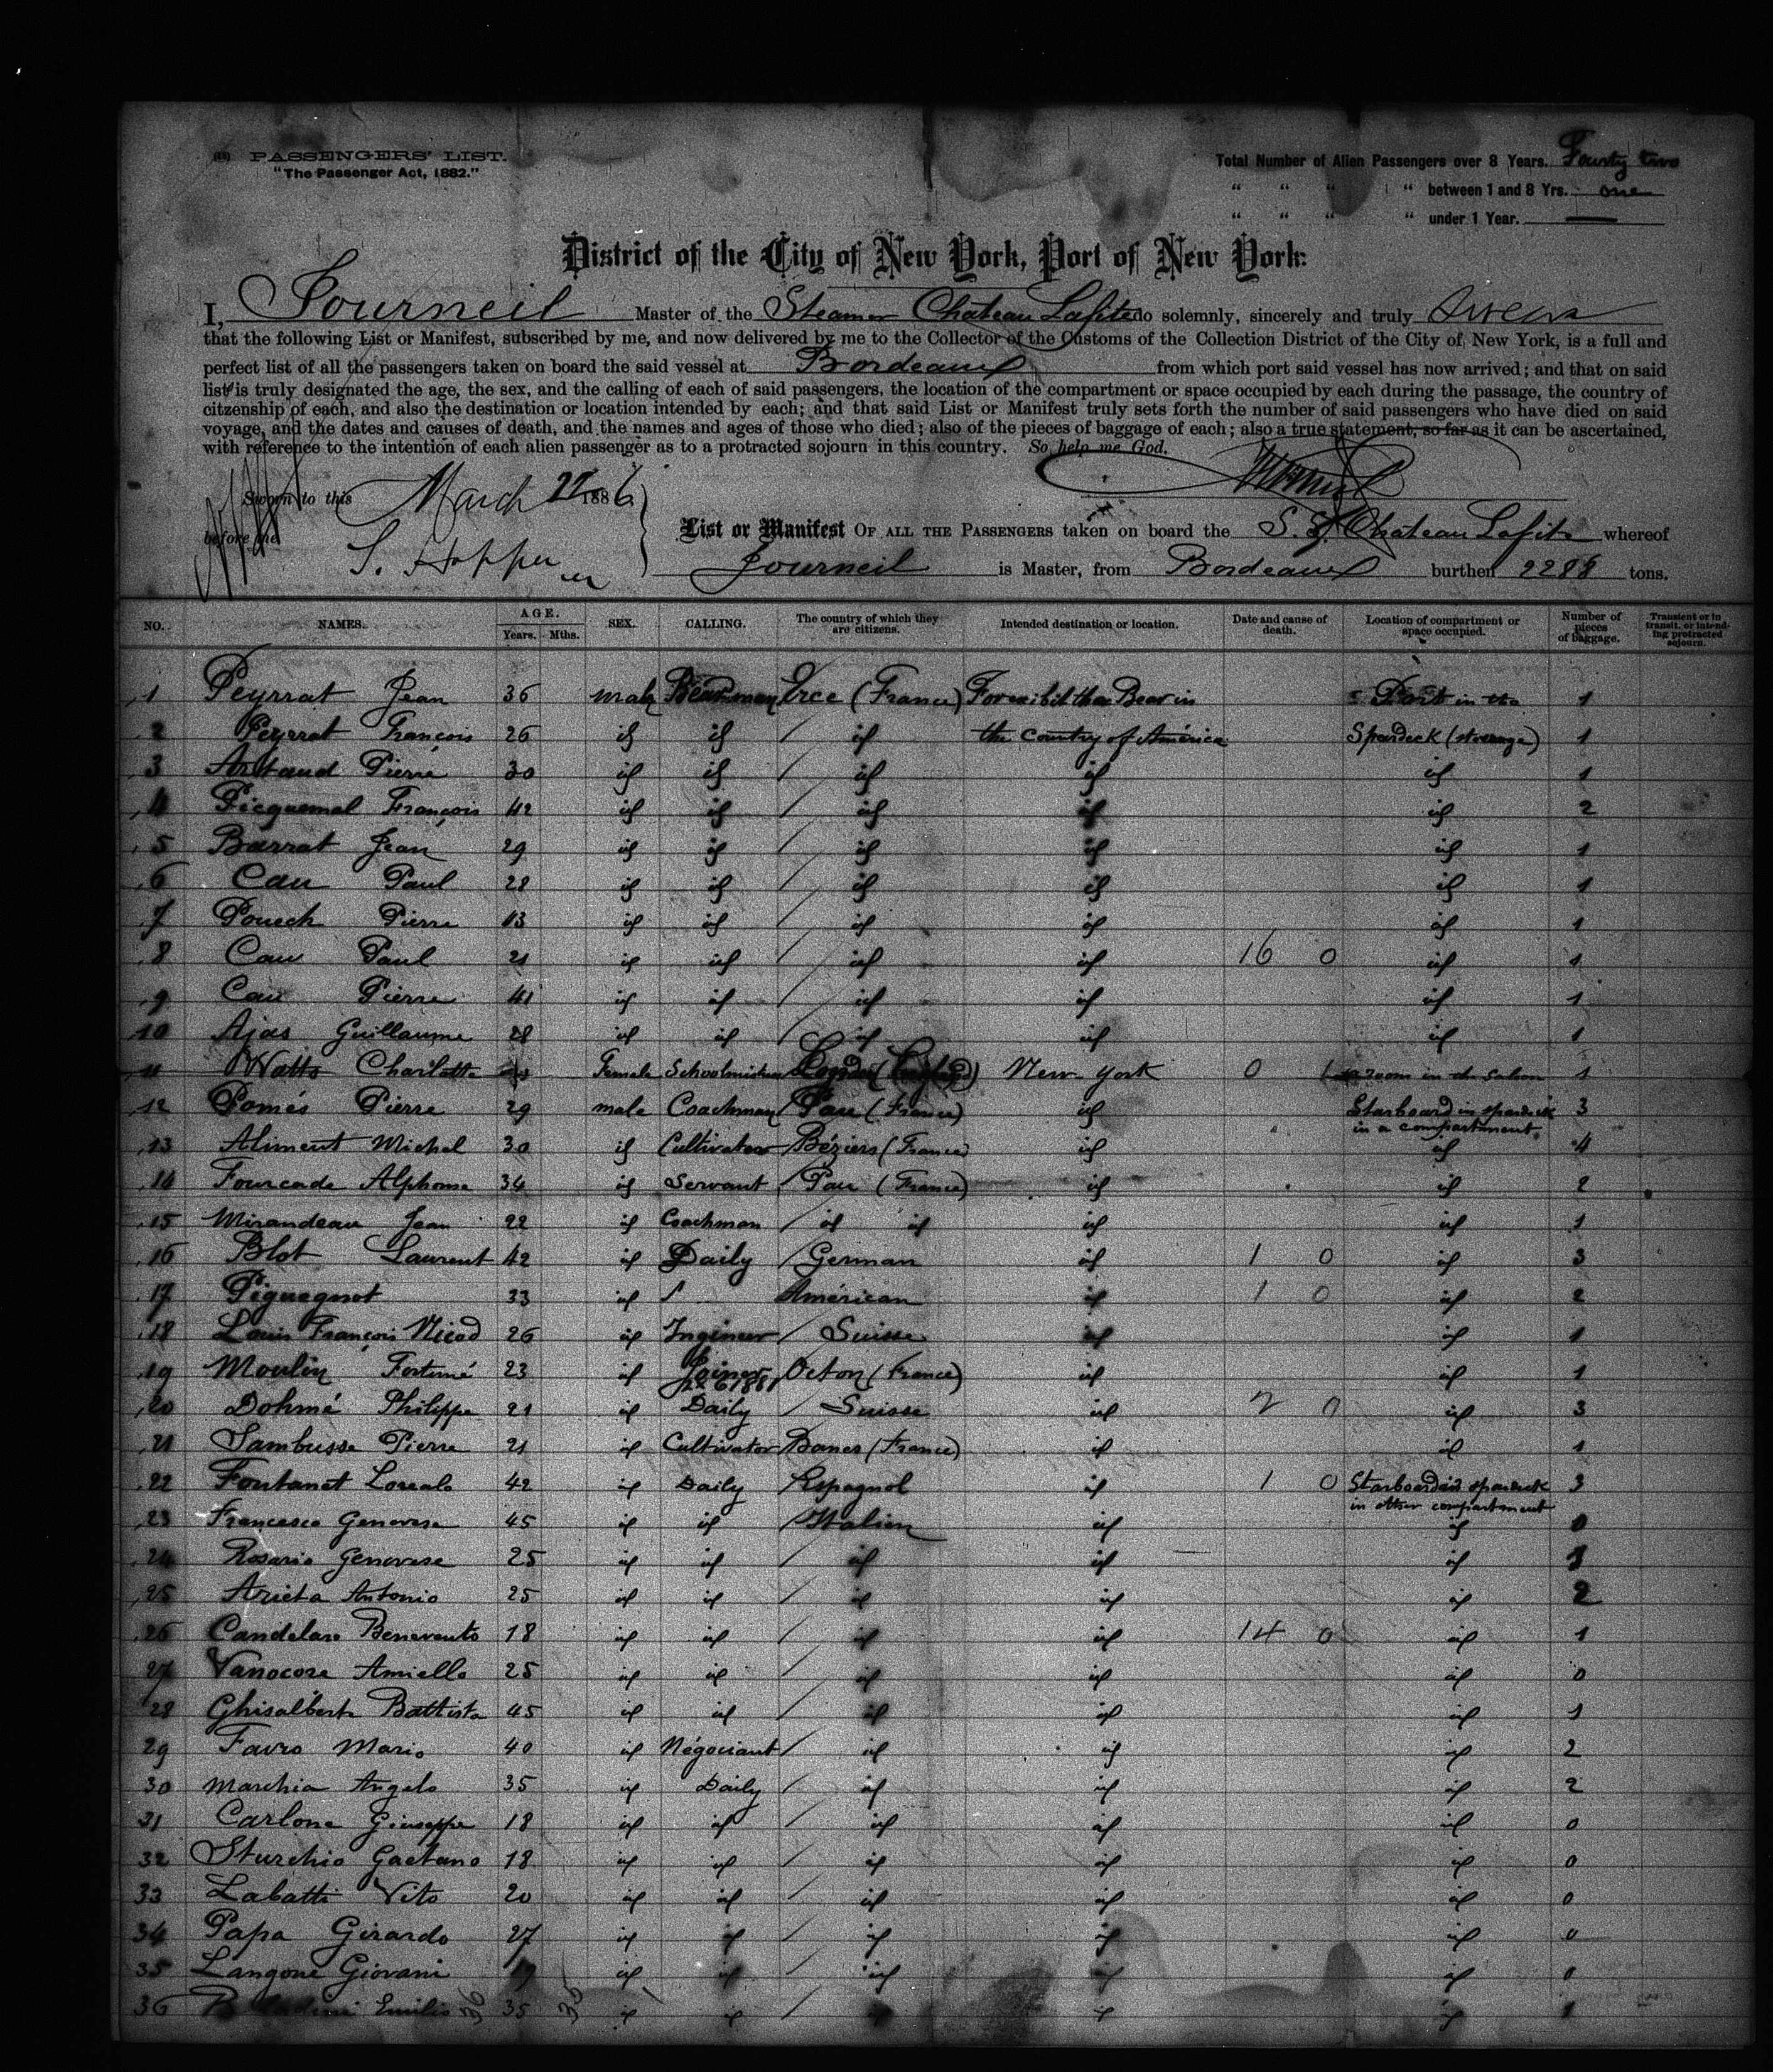 PASSENGERS' LIST.
"The Passenger Act, 1882."
Total Number of Alien Passengers over 8 Years. Fourty two
" " " " between 1 and 8 Yrs. one
" " " " under 1 Year. —
District of the City of New York, Port of New York:
I, Journeil Master of the Steamer Chateau Lafite do solemnly, sincerely and truly swear
that the following List or Manifest, subscribed by me, and now delivered by me to the Collector of the Customs of the Collection District of the City of New York, is a full and
perfect list of all the passengers taken on board the said vessel at Bordeaux from which port said vessel has now arrived; and that on said
list is truly designated the age, the sex, and the calling of each of said passengers, the location of the compartment or space occupied by each during the passage, the country of
citzenship of each, and also the destination or location intended by each; and that said List or Manifest truly sets forth the number of said passengers who have died on said
voyage, and the dates and causes of death, and the names and ages of those who died; also of the pieces of baggage of each; also a true statement, so far as it can be ascertained,
with reference to the intention of each alien passenger as to a protracted sojourn in this country. So help me God.
Sworn to this March 22 1886
before me S. Hopper
List or Manifest OF ALL THE PASSENGERS taken on board the S. S. Chateau Lafite whereof
Journeil is Master, from Bordeaux burthen 2288 tons.
NO. NAMES. AGE. Years. Mths. SEX. CALLING. The country of which they are citizens. Intended destination or location. Date and cause of death. Location of compartment or space occupied. Number of pieces of baggage. Transient or in transit, or intending protracted sojourn.
1 Peyrat Jean 36 male Bearman Erce (France) For exibit the Bear in Port in the 1
2 Peyrat François 26 id id id the country of América Spardeck (steerage) 1
3 Artaud Pierre 30 id id id id id 1
4 Picquemal François 42 id id id id id 2
5 Barrat Jean 29 id id id id id 1
6 Cau Paul 28 id id id id id 1
7 Pouech Pierre 13 id id id id id 1
8 Cau Paul 21 id id id id 16 0 id 1
9 Cau Pierre 41 id id id id id 1
10 Ajas Guillaume 28 id id id id id 1
11 Watts Charlotte Female Schoolmistress New York 0 room in the saloon 1
12 Pomés Pierre 29 male Coachman Pau (France) id Starboard in spardeck in a compartment 3
13 Aliment Michel 30 id Cultivator Béziers (France) id id 4
14 Fourcade Alphonse 34 id Servant Pau (France) id id 2
15 Mirandeau Jean 22 id Coachman id id id id 1
16 Blot Laurent 42 id Daily German id 1 0 id 3
17 Piguegnot 33 id American id 1 0 id 2
18 Louis François Nicod 26 id Ingineer Suisse id id 1
19 Moulin Fortuné 23 id Joiner Octon (France) id id 1
20 Dohmé Philippe 21 id Daily Suisse id 2 0 id 3
21 Sambusse Pierre 21 id Cultivator Banes (France) id id 1
22 Fontanet 42 id Daily Espagnol id 1 0 Starboard in spardeck in other compartment 3
23 Francesco Genovese 45 id id Italien id id 0
24 Rosario Genovese 25 id id id id id 1
25 Arieta Antonio 25 id id id id id 2
26 Candelaro Benevento 18 id id id id 14 0 id 1
27 Vanocore Amiello 25 id id id id id 0
28 Ghisalberti Battista 45 id id id id id 1
29 Favro Mario 40 id Négociant id id id 2
30 Marchia Angelo 35 id Daily id id id 2
31 Carlone Giuseppe 18 id id id id id 0
32 Sturchio Gaetano 18 id id id id id 0
33 Labatti Vito 20 id id id id id 0
34 Papa Girardo 27 id id id id id 0
35 Langone Giovani id id id id id 0
36 Emilio 35 id id id id id 1